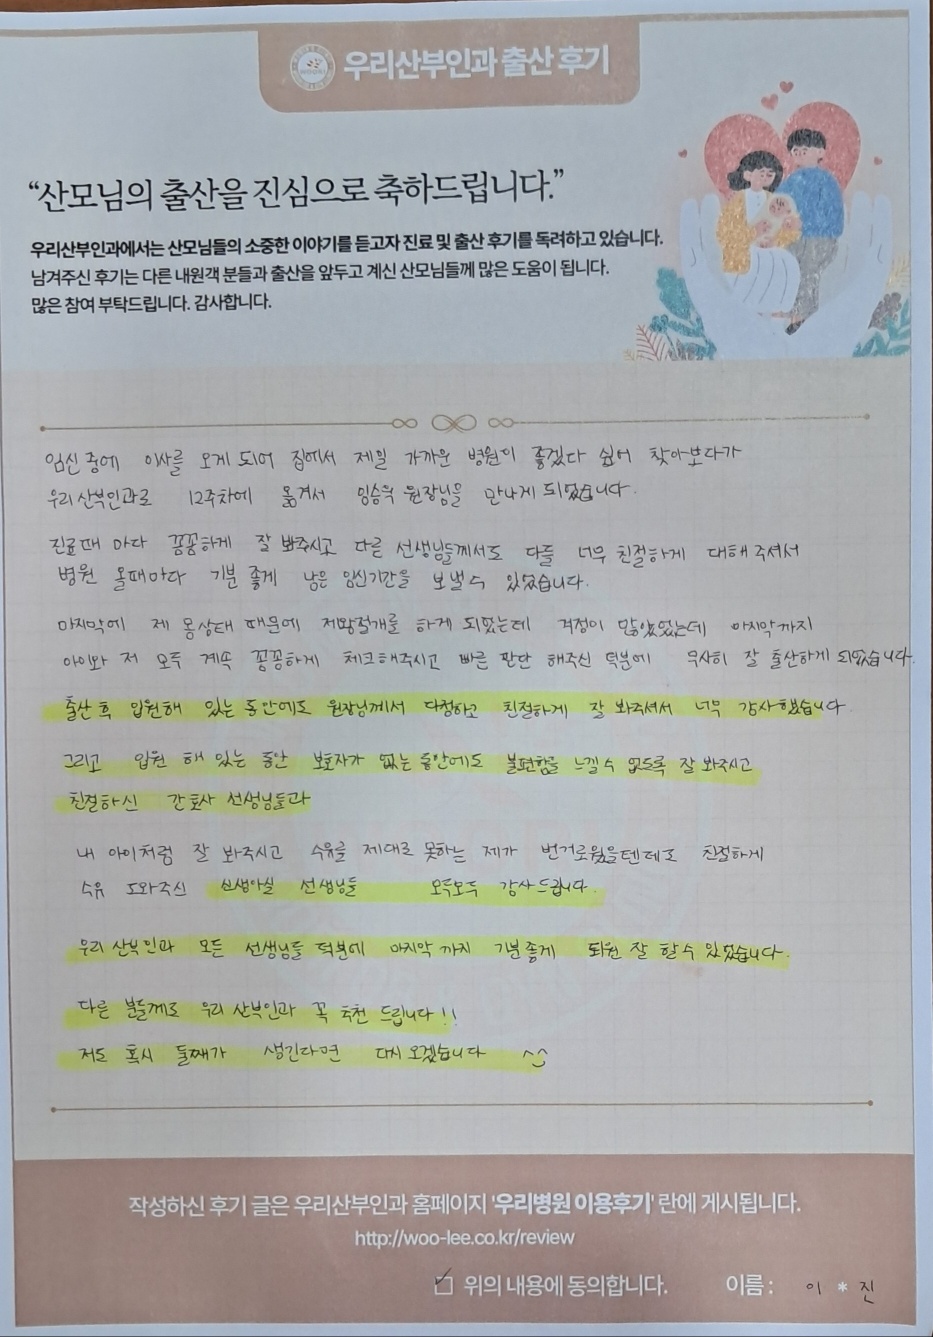 우리산부인과 출산 후기
“산모님의 출산을 진심으로 축하드립니다.”
우리산부인과에서는 산모님들의 소중한 이야기를 듣고자 진료 및 출산 후기를 독려하고 있습니다.
남겨주신 후기는 다른 내원객 분들과 출산을 앞두고 계신 산모님들께 많은 도움이 됩니다.
많은 참여 부탁드립니다. 감사합니다.
임신 중에 이사를 오게 되어 집에서 제일 가까운 병원이 좋겠다 싶어 찾아보다가
우리 산부인과로 12주차에 옮겨서 임승욱 원장님을 만나게 되었습니다.
진료때 마다 꼼꼼하게 잘 봐주시고 다른 선생님들께서도 다들 너무 친절하게 대해 주셔서
병원 올때마다 기분 좋게 남은 임신기간을 보낼 수 있었습니다.
마지막에 제 몸상태 때문에 제왕절개를 하게 되었는데 걱정이 많았었는데 마지막까지
아이와 저 모두 계속 꼼꼼하게 체크해주시고 빠른 판단 해주신 덕분에 무사히 잘 출산하게 되었습니다.
출산 후 입원해 있는 동안에도 원장님께서 다정하고 친절하게 잘 봐주셔서 너무 감사했습니다.
그리고 입원 해 있는 동안 보호자가 없는 동안에도 불편함을 느낄 수 없도록 잘 봐주시고
친절하신 간호사 선생님들과
내 아이처럼 잘 봐주시고 수유를 제대로 못하는 제가 번거로웠을텐데도 친절하게
수유 도와주신 신생아실 선생님들 모두모두 감사드립니다.
우리 산부인과 모든 선생님들 덕분에 마지막 까지 기분좋게 퇴원 잘 할 수 있었습니다.
다른 분들께도 우리 산부인과 꼭 추천 드립니다!!
저도 혹시 둘째가 생긴다면 다시 오겠습니다 ^^
작성하신 후기 글은 우리산부인과 홈페이지 '우리병원 이용후기' 란에 게시됩니다.
http://woo-lee.co.kr/review
위의 내용에 동의합니다. 이름 : 이 * 진